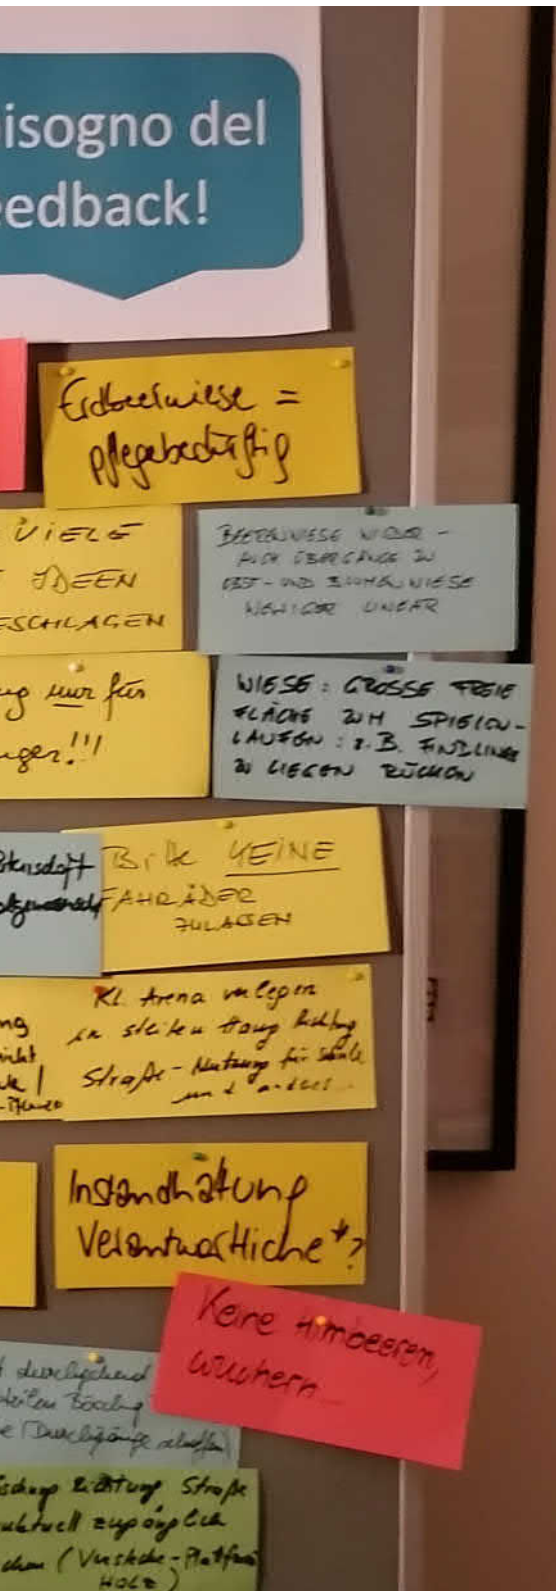 bisogno del
eedback!
Erdbeerwiese =
pflegebedürftig
VIELE
IDEEN
ESCHLAGEN
BEERENWIESE WILDER -
AUCH ÜBERGÄNGE ZU
OBST- UND BLUMENWIESE
WENIGER LINEAR
ng nur für
nger!!!
WIESE: GROSSE FREIE
FLÄCHE ZUM SPIELEN -
LAUFEN: z.B. FINDLINGE
ZU LIEGEN RÜCKEN
Bitte KEINE
FAHRÄDER
ZULASSEN
Kl. Arena verlegen
in steilen Hang Richtung
Straße - Nutzung für Schule
und andere
ng
icht
Instandhaltung
Verantwortliche*?
Keine Himbeeren,
wuchern...
durchgehend
steilen Böschung
(Durchgänge schaffen)
Richtung Straße
aktuell zugänglich
chen (Verstecke-Plattform
HOLZ)